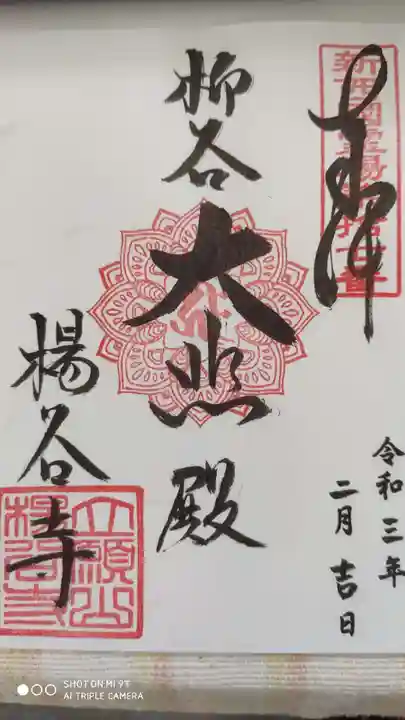 奉拝
新西国霊場第十七番
柳谷
大悲殿
楊谷寺
立願山楊谷寺
令和三年
二月吉日
SHOT ON MI 9T
AI TRIPLE CAMERA